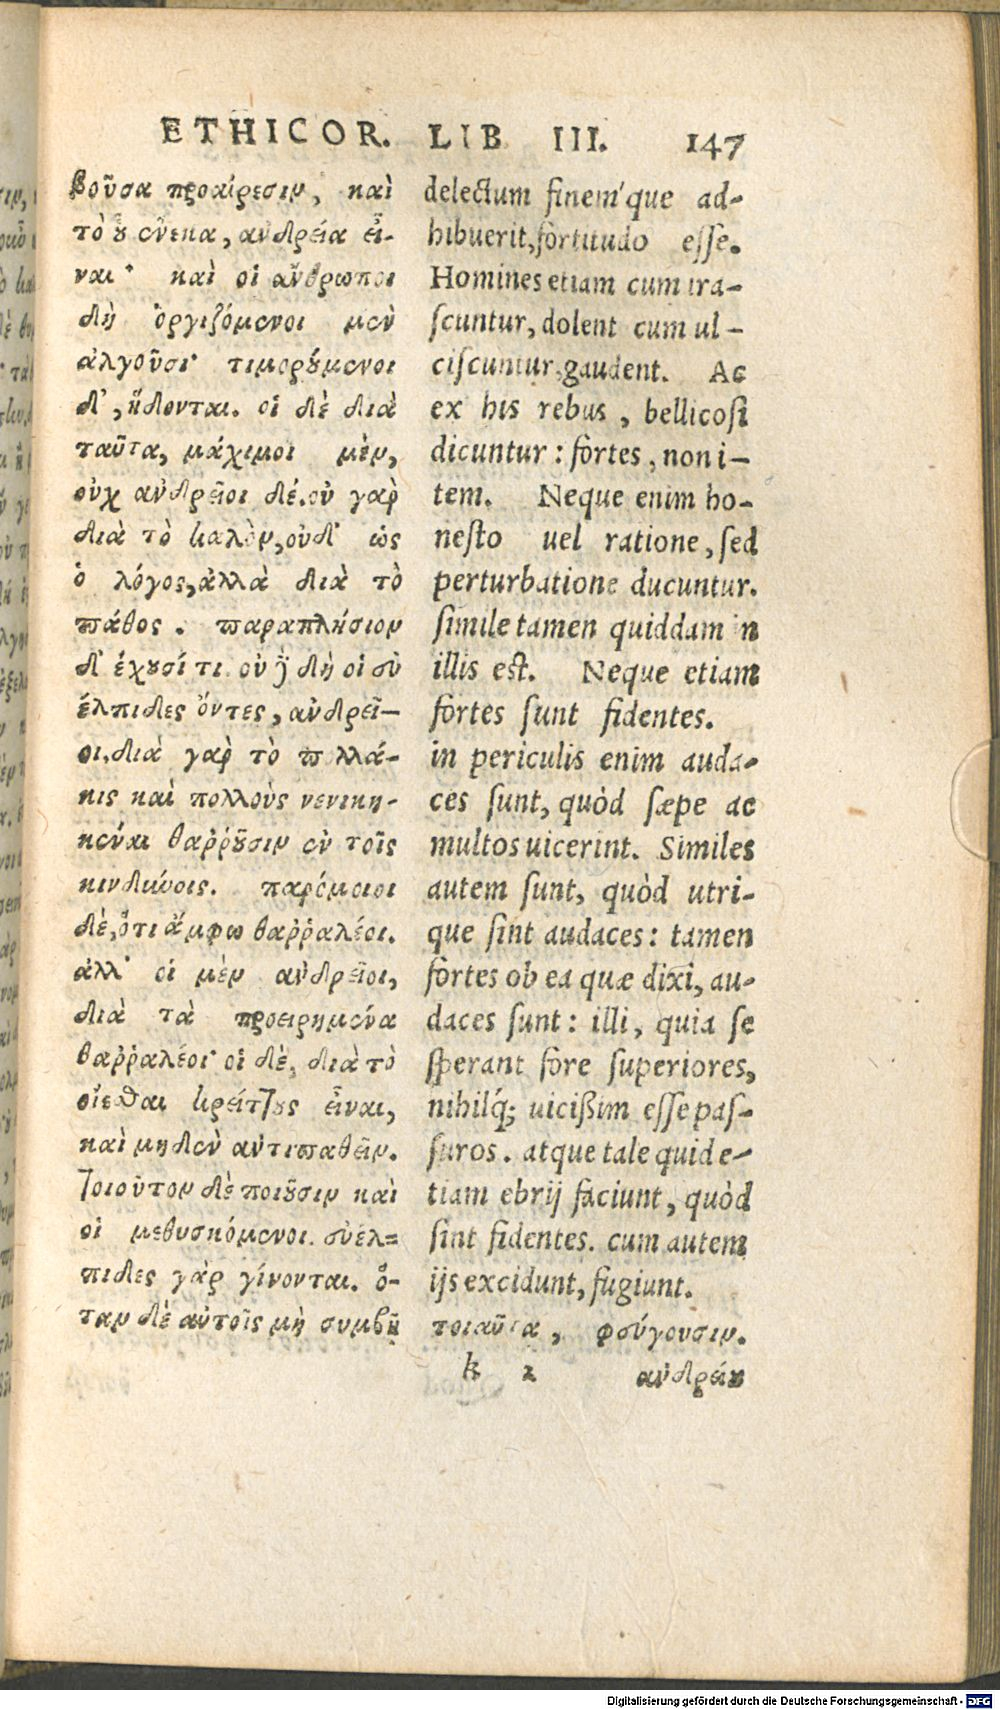 ETHICOR. LIB III. 147
βοῦσα προαίρεσιν, καὶ
τὸ οὗ ἕνεκα, ἀνδρεία εἶ-
ναι· καὶ οἱ ἄνθρωποι
δὴ ὀργιζόμενοι μὲν
ἀλγοῦσι· τιμορούμενοι
δ', ἥδονται. οἱ δὲ διὰ
ταῦτα, μάχιμοι μὲν,
οὐχ ἀνδρεῖοι δέ. οὐ γὰρ
διὰ τὸ καλὸν, οὐδ' ὡς
ὁ λόγος, ἀλλὰ διὰ τὸ
πάθος. παραπλήσιον
δ' ἔχουσί τι. οὐ γὰρ δὴ οἱ εὐ
έλπιδες ὄντες, ἀνδρεῖ-
οι. διὰ γὰρ τὸ πολλά-
κις καὶ πολλοὺς νενικη-
κέναι θαῤῥοῦσιν ἐν τοῖς
κινδύνοις. παρόμοιοι
δὲ, ὅτι ἄμφω θαῤῥαλέοι.
ἀλλ' οἱ μὲν ἀνδρεῖοι,
διὰ τὰ προειρημένα
θαῤῥαλέοι· οἱ δὲ, διὰ τὸ
οἴεσθαι κρείττους εἶναι,
καὶ μηδὲν ἀντιπαθεῖν.
τοιοῦτον δὲ ποιοῦσιν καὶ
οἱ μεθυσκόμενοι. εὐέλ=
πιδες γὰρ γίνονται. ὅ-
ταν δὲ αὐτοῖς μὴ συμβῇ
τοιαῦτα, φεύγουσιν.
delectum finem'que ad-
hibuerit, fortitudo esse.
Homines etiam cum ira-
scuntur, dolent cum ul-
ciscuntur, gaudent. Ac
ex his rebus, bellicosi
dicuntur: fortes, non i-
tem. Neque enim ho-
nesto uel ratione, sed
perturbatione ducuntur.
simile tamen quiddam in
illis est. Neque etiam
fortes sunt fidentes.
in periculis enim auda-
ces sunt, quòd sæpe ac
multos uicerint. Similes
autem sunt, quòd utri-
que sint audaces: tamen
fortes ob ea quæ dixi, au-
daces sunt: illi, quia se
sperant fore superiores,
nihilq́; uicißim esse pas-
suros. atque tale quid e-
tiam ebrij faciunt, quòd
sint fidentes. cum autem
ijs excidunt, fugiunt.
k 2 ἀνδρείου
Digitalisierung gefördert durch die Deutsche Forschungsgemeinschaft - DFG